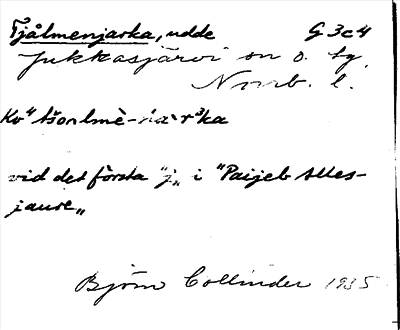 Tjålmenjarka, udde G 3c4
Jukkasjärvi sn o. tg,
Norrb. l.
vid det första "j„ i "Paijeb Alles-
jaure„
Björn Collinder 1935